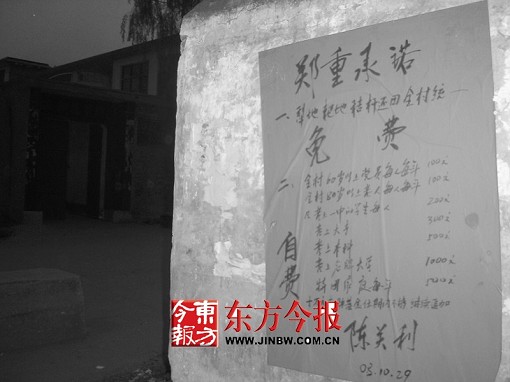 郑重承诺
一、犁地耙地秸秆还田全村统一
免费
二、全村60岁以上党员每人每年100元
全村80岁以上老人每人每年100元
考上一中的学生每人200元
考上大专300元
考上本科500元
考上名牌大学1000元
5000元
自费
陈关利
03.10.29
東方今報
东方今报
WWW.JINBW.COM.CN